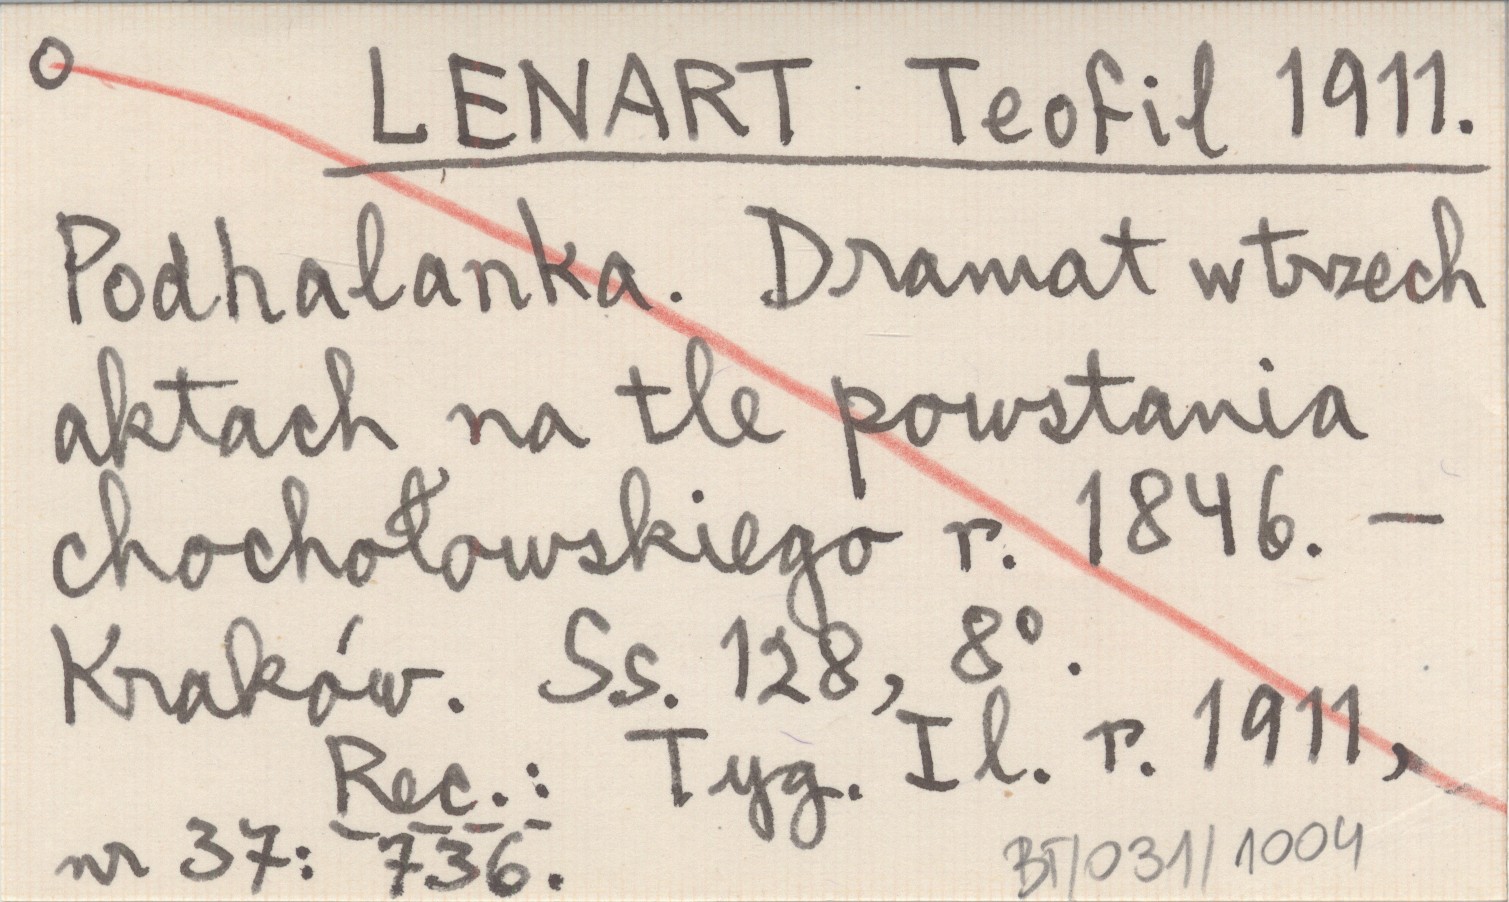 LENART Teofil 1911.
Podhalanka. Dramat w trzech
aktach na tle powstania
chochołowskiego r. 1846. —
Kraków. Ss. 128, 8°.
Rec.: Tyg. Il. r. 1911,
nr 37: 736.
BT/031/1004